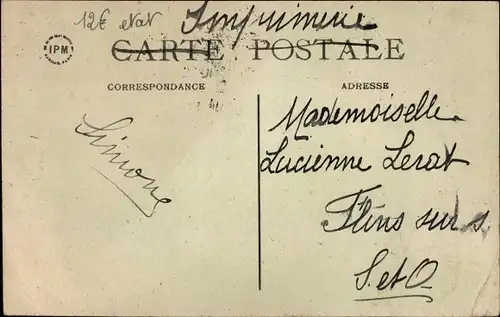 12€ etat
Imprimerie
IPM
CARTE POSTALE
CORRESPONDANCE
ADRESSE
Simone
Mademoiselle
Lucienne Lerat
Flins sur s.
S. et O.